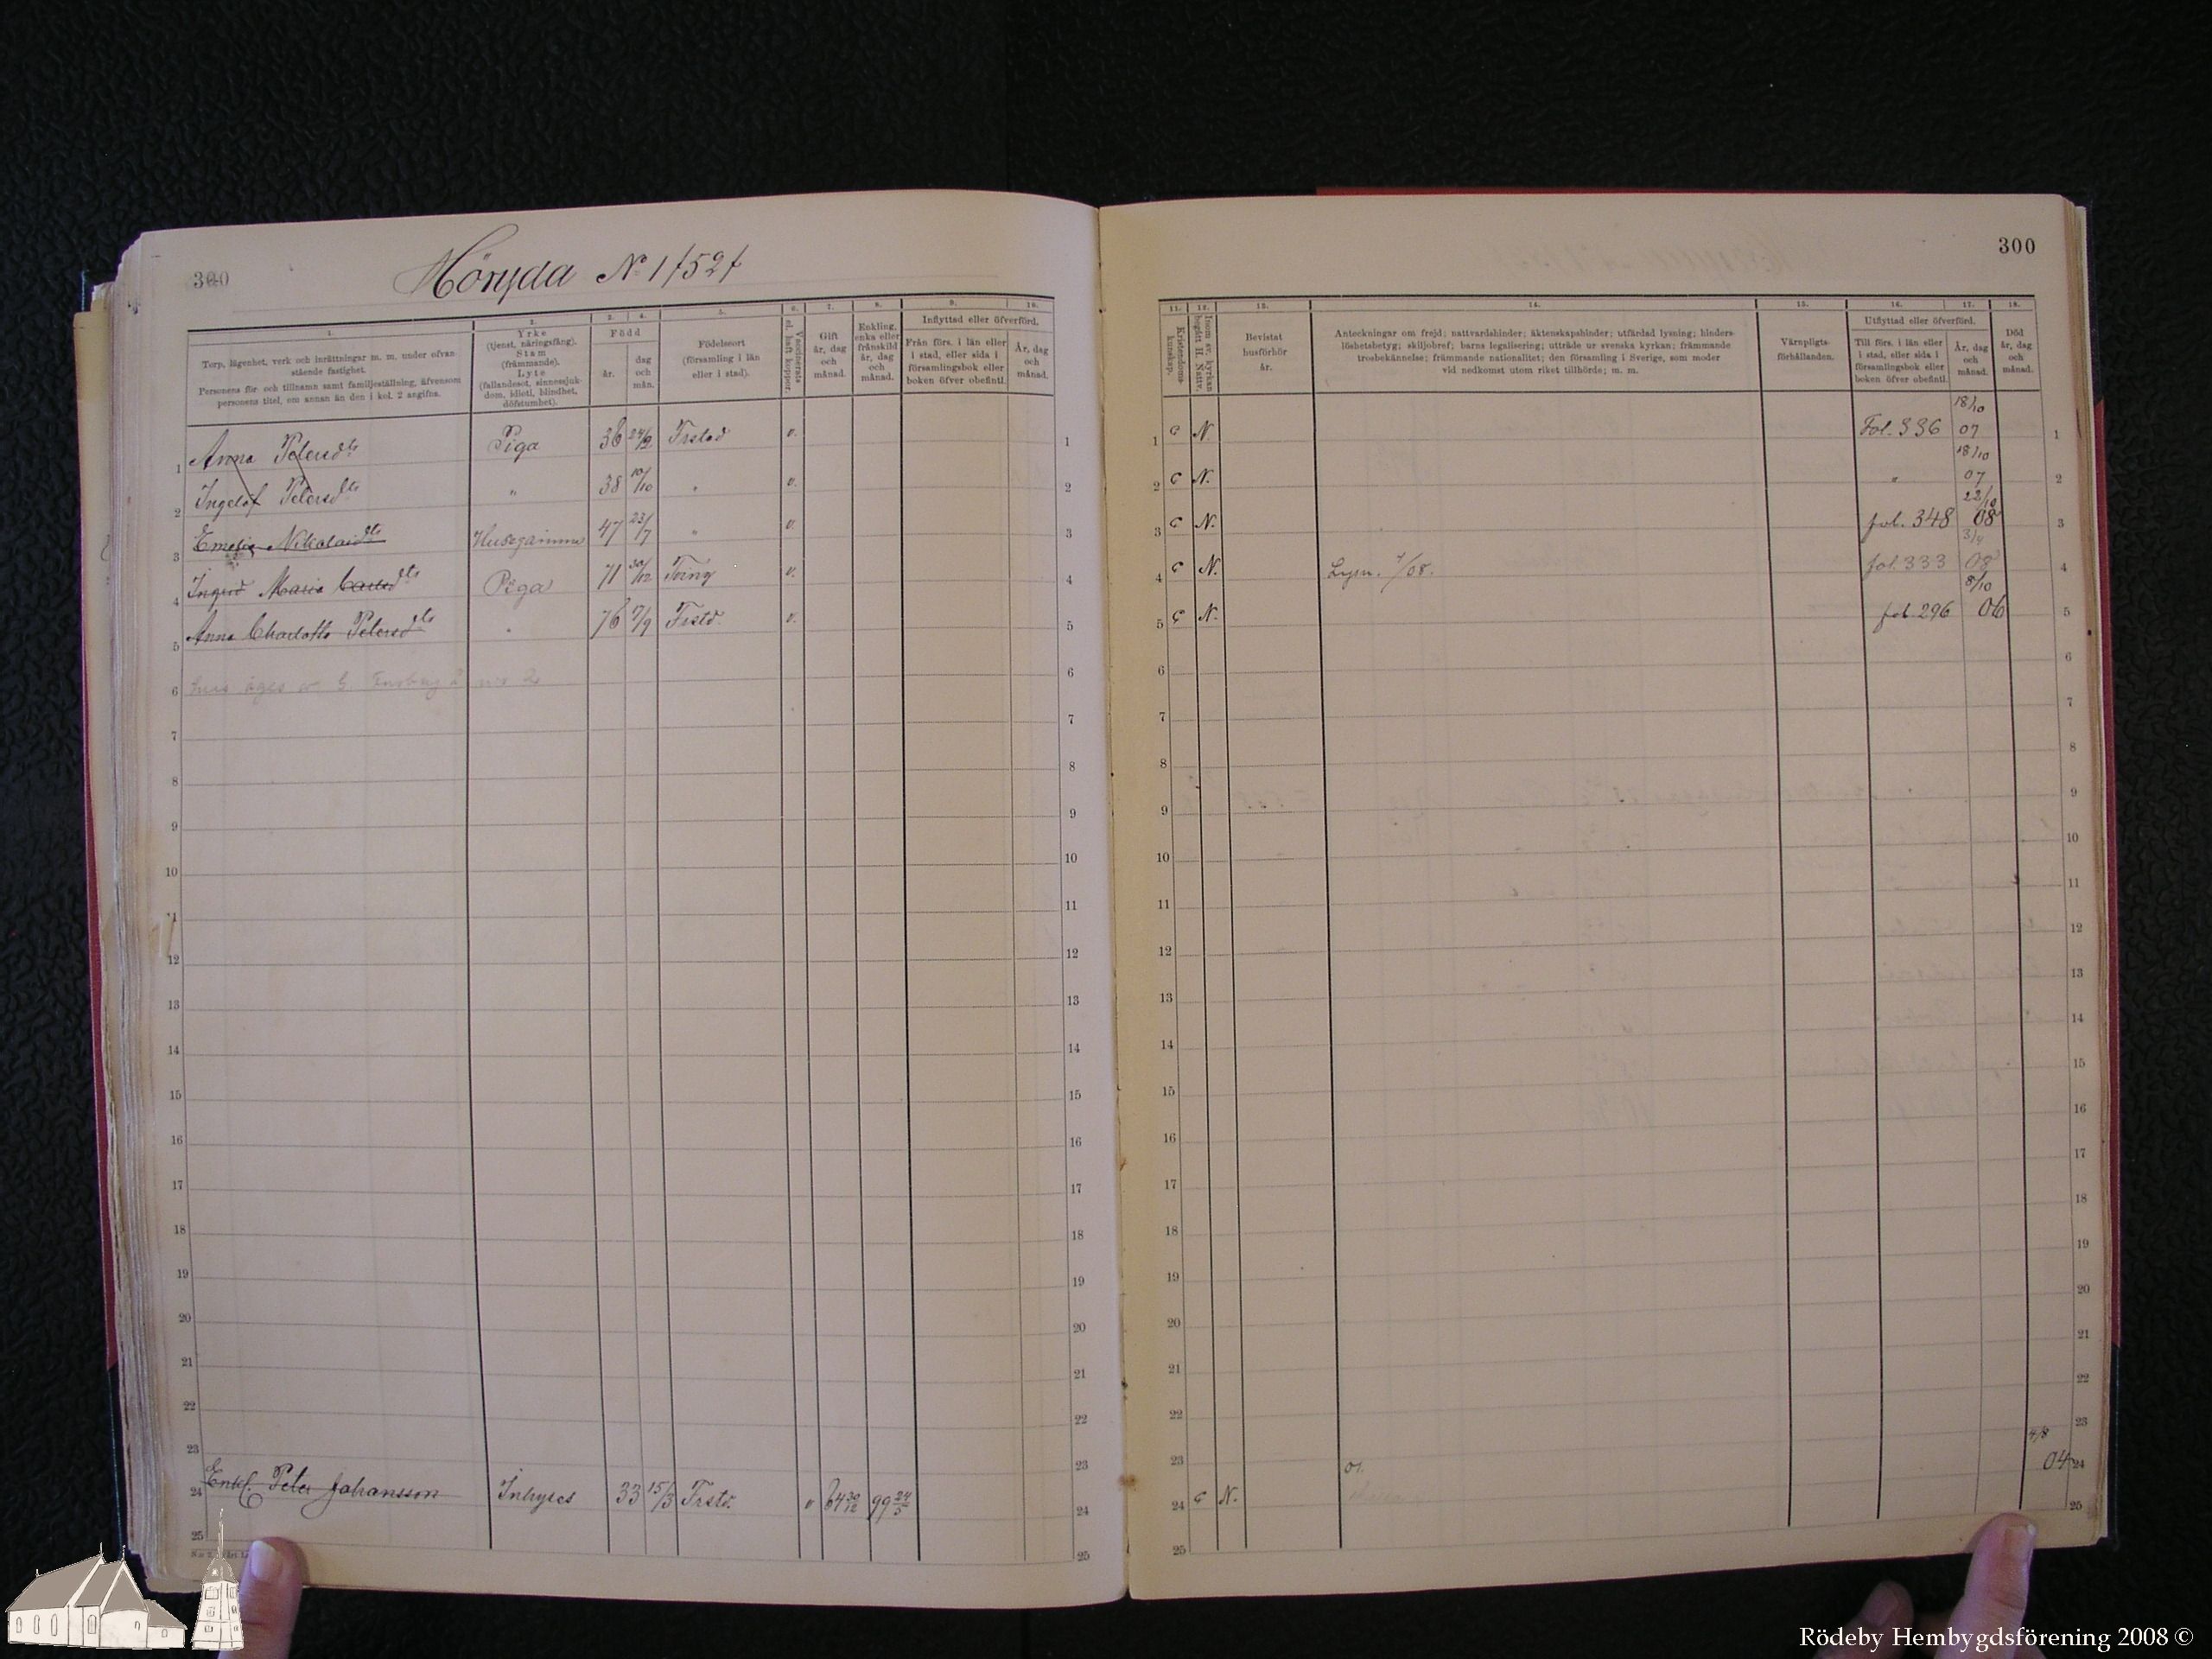 300
Höryda No 1 / 52 /
1. 2. 3. 4. 5. 6. 7. 8. 9. 10.
Torp, lägenhet, verk och inrättningar m. m. under ofvanstående fastighet.
Personens för- och tillnamn samt familjeställning, äfvensom personens titel, om annan än den i kol. 2 angifna.
Yrke (tjenst, näringsfång). Stam (främmande). Lyte (fallandesot, sinnessjukdom, idioti, blindhet, döfstumhet).
Född
år.
dag och mån.
Födelseort (församling i län eller i stad).
Vaccinerats el. haft koppor.
Gift år, dag och månad.
Enkling, enka eller frånskild år, dag och månad.
Inflyttad eller öfverförd.
Från förs. i län eller i stad, eller sida i församlingsbok eller boken öfver obefintl.
År, dag och månad.
1 Anna Petersdtr Piga 36 24/2 Frstad v. 1
2 Ingelöf Petersdtr " 38 10/10 " v. 2
3 Nikolaidtr 47 23/7 " v. 3
4 Ingrid Maria Carlsdtr Piga 71 30/12 Tving v. 4
5 Anna Charlotta Petersdtr " 76 7/9 Frstd. v. 5
6 hus äges av 6
7 7
8 8
9 9
10 10
11 11
12 12
13 13
14 14
15 15
16 16
17 17
18 18
19 19
20 20
21 21
22 22
23 23
24 Enkl. Peter Johansson Inhyses 33 15/3 Frstd. v 64 30/12 99 24/5 24
25 25
300
11. 12. 13. 14. 15. 16. 17. 18.
Kristendomskunskap.
Inom sv. kyrkan begått H. Nattv.
Bevistat husförhör år.
Anteckningar om frejd; nattvardshinder; äktenskapshinder; utfärdad lysning; hinderslöshetsbetyg; skiljobref; barns legalisering; utträde ur svenska kyrkan; främmande trosbekännelse; främmande nationalitet; den församling i Sverige, som moder vid nedkomst utom riket tillhörde; m. m.
Värnpligtsförhållanden.
Utflyttad eller öfverförd.
Till förs. i län eller i stad, eller sida i församlingsbok eller boken öfver obefintl.
År, dag och månad.
Död år, dag och månad.
1 G N. Fol. 336 18/10 07 1
2 G N. " 18/10 07 2
3 G N. fol. 348 22/10 08 3
4 G N. Lysn. /08. fol. 333 3/4 08 4
5 G N. fol. 296 8/10 06 5
6 6
7 7
8 8
9 9
10 10
11 11
12 12
13 13
14 14
15 15
16 16
17 17
18 18
19 19
20 20
21 21
22 22
23 01. 23
24 G N. 4/8 04 24
25 25
Rödeby Hembygdsförening 2008 ©